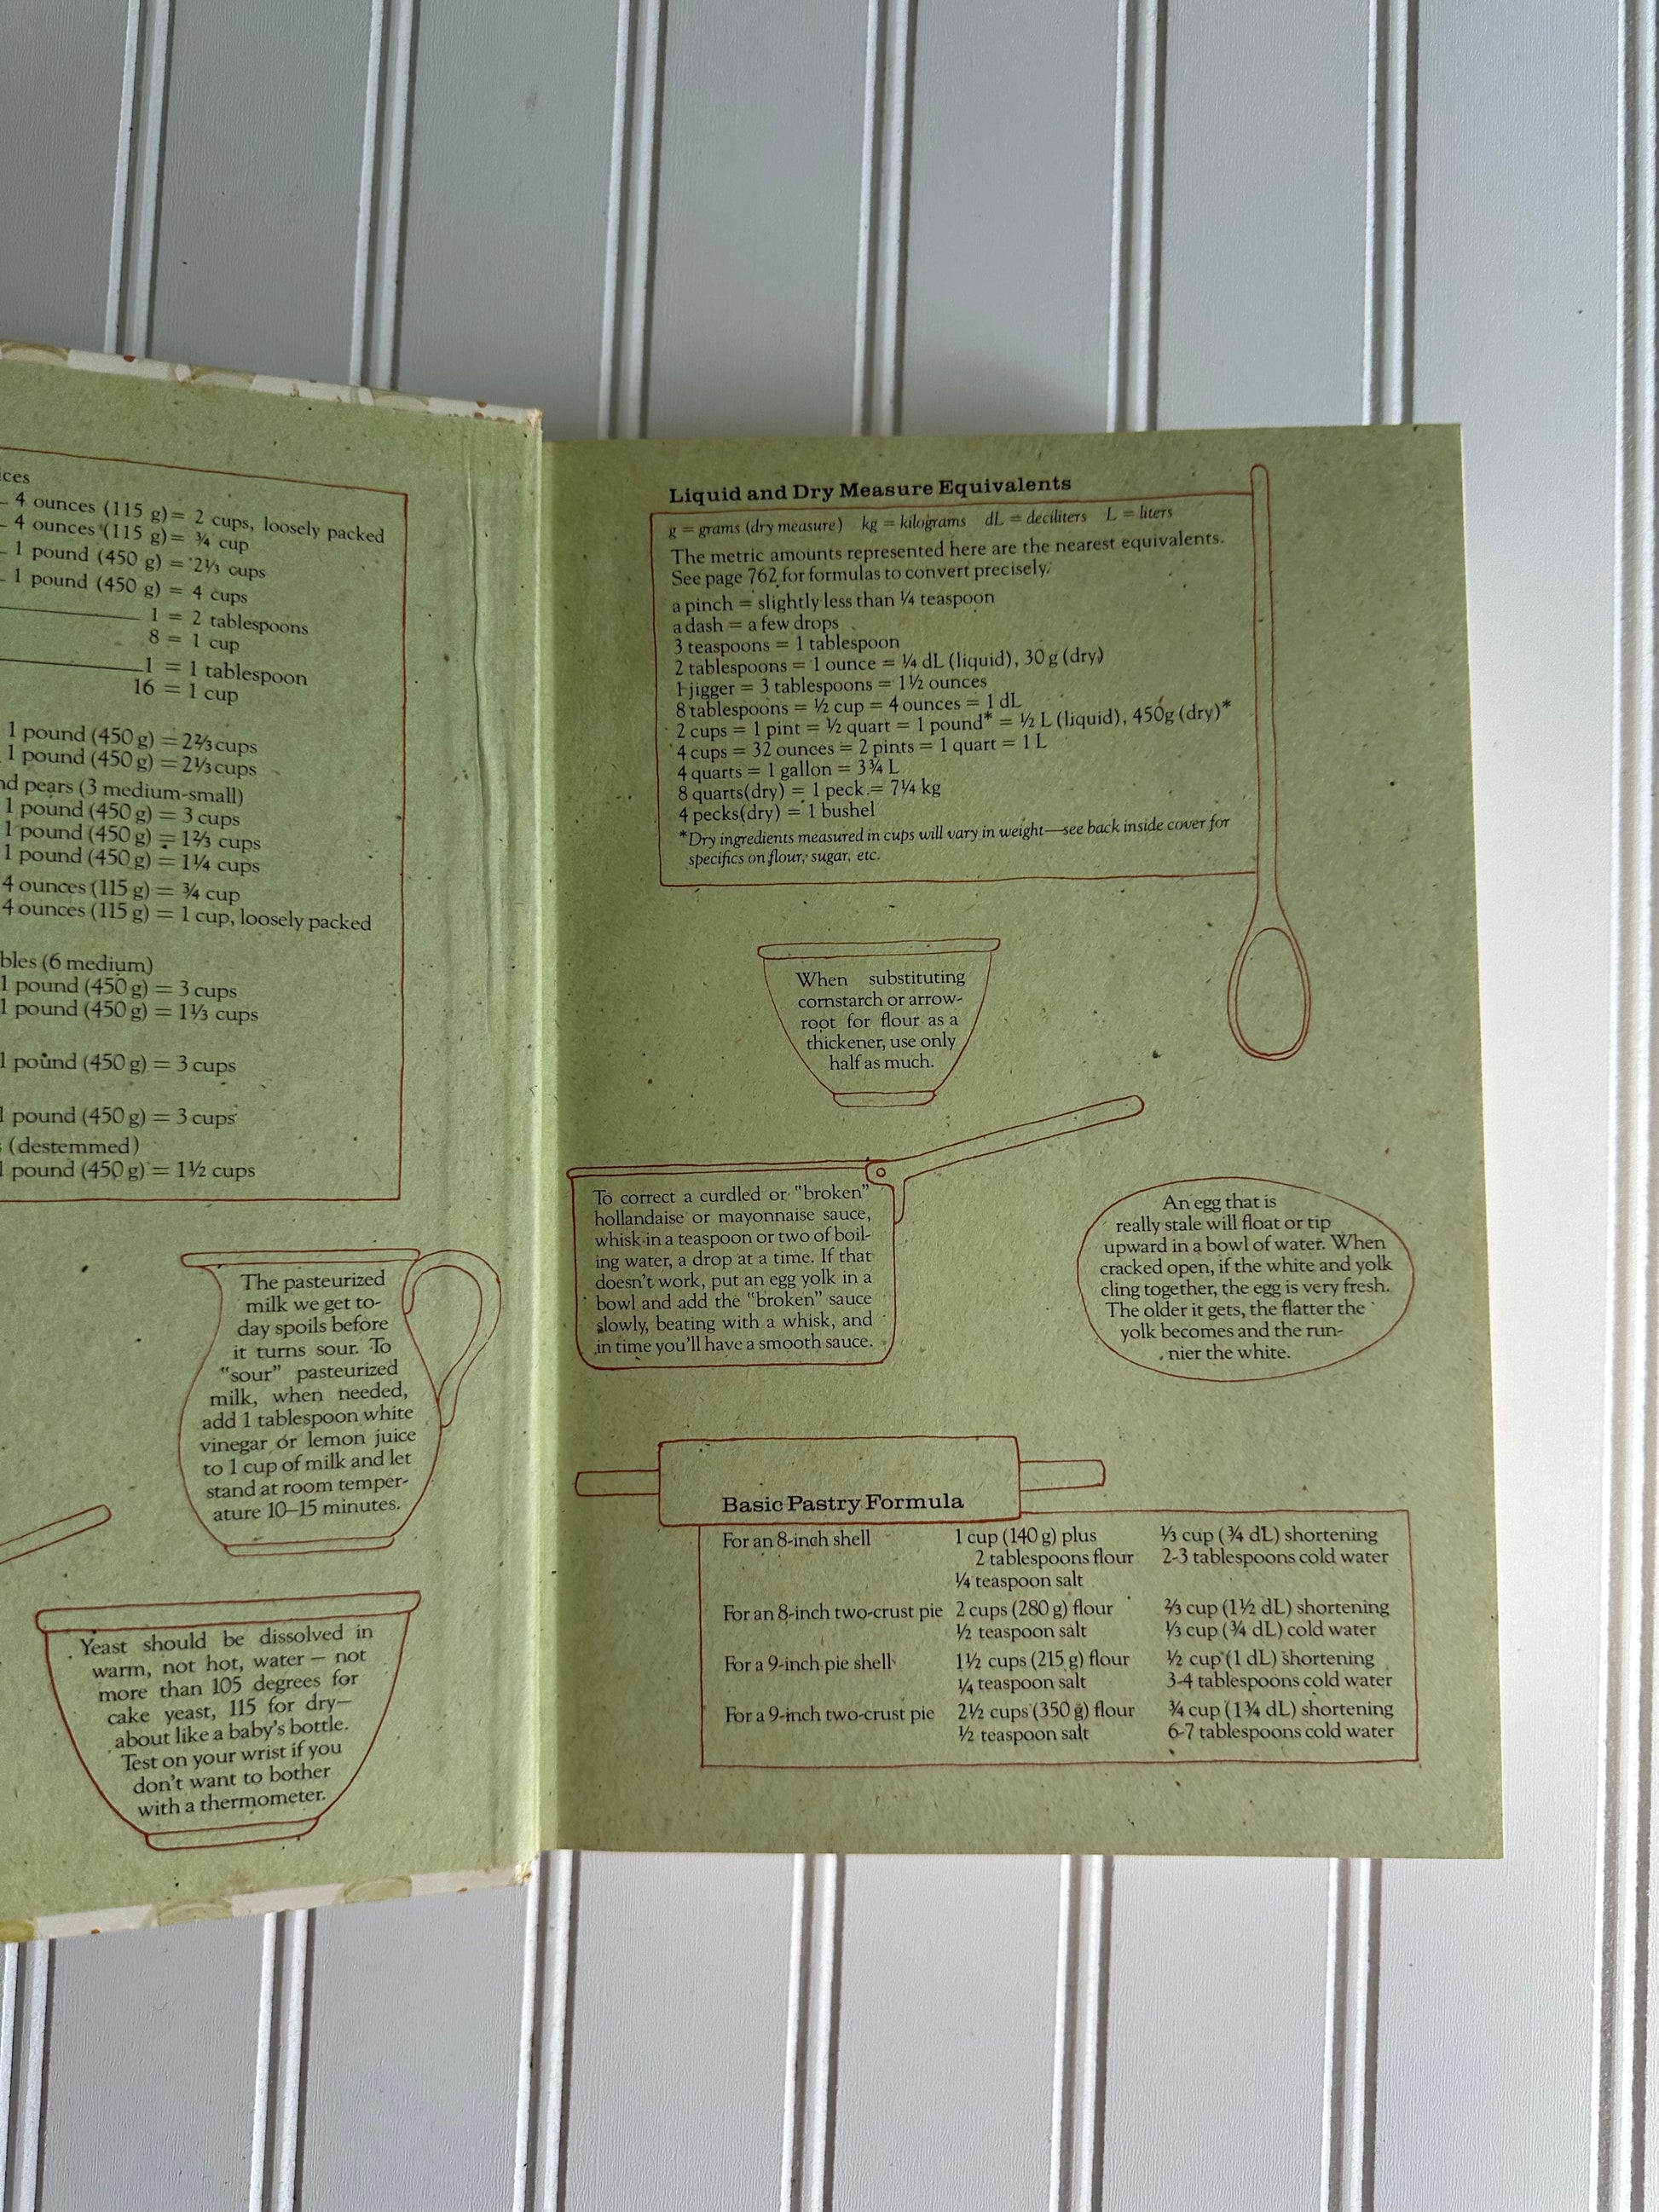 ces
4 ounces (115 g) = 2 cups, loosely packed
4 ounces (115 g) = ¾ cup
1 pound (450 g) = 2⅓ cups
1 pound (450 g) = 4 cups
1 = 2 tablespoons
8 = 1 cup
1 = 1 tablespoon
16 = 1 cup
1 pound (450 g) = 2⅔ cups
1 pound (450 g) = 2⅓ cups
nd pears (3 medium-small)
1 pound (450 g) = 3 cups
1 pound (450 g) = 1⅔ cups
1 pound (450 g) = 1¼ cups
4 ounces (115 g) = ¾ cup
4 ounces (115 g) = 1 cup, loosely packed
bles (6 medium)
1 pound (450 g) = 3 cups
1 pound (450 g) = 1⅓ cups
1 pound (450 g) = 3 cups
1 pound (450 g) = 3 cups
(destemmed)
1 pound (450 g) = 1½ cups
The pasteurized
milk we get to-
day spoils before
it turns sour. To
"sour" pasteurized
milk, when needed,
add 1 tablespoon white
vinegar or lemon juice
to 1 cup of milk and let
stand at room temper-
ature 10–15 minutes.
Yeast should be dissolved in
warm, not hot, water — not
more than 105 degrees for
cake yeast, 115 for dry—
about like a baby's bottle.
Test on your wrist if you
don't want to bother
with a thermometer.
Liquid and Dry Measure Equivalents
g = grams (dry measure) kg = kilograms dL = deciliters L = liters
The metric amounts represented here are the nearest equivalents.
See page 762 for formulas to convert precisely.
a pinch = slightly less than ¼ teaspoon
a dash = a few drops
3 teaspoons = 1 tablespoon
2 tablespoons = 1 ounce = ¼ dL (liquid), 30 g (dry)
1 jigger = 3 tablespoons = 1½ ounces
8 tablespoons = ½ cup = 4 ounces = 1 dL
2 cups = 1 pint = ½ quart = 1 pound* = ½ L (liquid), 450g (dry)*
4 cups = 32 ounces = 2 pints = 1 quart = 1 L
4 quarts = 1 gallon = 3¾ L
8 quarts(dry) = 1 peck = 7¼ kg
4 pecks(dry) = 1 bushel
*Dry ingredients measured in cups will vary in weight—see back inside cover for
specifics on flour, sugar, etc.
When substituting
cornstarch or arrow-
root for flour as a
thickener, use only
half as much.
To correct a curdled or "broken"
hollandaise or mayonnaise sauce,
whisk in a teaspoon or two of boil-
ing water, a drop at a time. If that
doesn't work, put an egg yolk in a
bowl and add the "broken" sauce
slowly, beating with a whisk, and
in time you'll have a smooth sauce.
An egg that is
really stale will float or tip
upward in a bowl of water. When
cracked open, if the white and yolk
cling together, the egg is very fresh.
The older it gets, the flatter the
yolk becomes and the run-
nier the white.
Basic Pastry Formula
For an 8-inch shell 1 cup (140 g) plus ⅓ cup (¾ dL) shortening
2 tablespoons flour 2-3 tablespoons cold water
¼ teaspoon salt
For an 8-inch two-crust pie 2 cups (280 g) flour ⅔ cup (1½ dL) shortening
½ teaspoon salt ⅓ cup (¾ dL) cold water
For a 9-inch pie shell 1½ cups (215 g) flour ½ cup (1 dL) shortening
¼ teaspoon salt 3-4 tablespoons cold water
For a 9-inch two-crust pie 2½ cups (350 g) flour ¾ cup (1¾ dL) shortening
½ teaspoon salt 6-7 tablespoons cold water